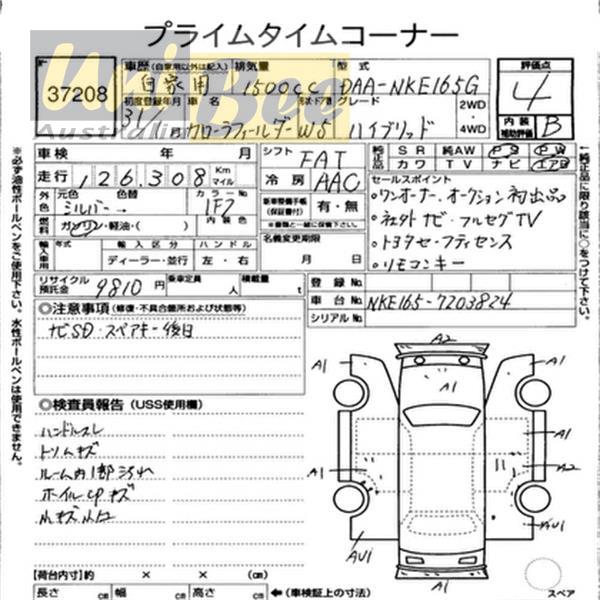 プライムタイムコーナー
UniBee
Australia
37208
車歴 (自家用以外は記入) 排気量 型式
自家用 1500cc DAA-NKE165G
初度登録年月 車名 形状・ドア数 グレード 2WD・4WD
カローラフィールダー W5 ハイブリッド
評価点
4
内装補助評価 B
車検 年 月
走行 126,308 Km マイル
外色 元色 色替 カラーNo.
シルバー 1F7
燃料 ガソリン・軽油・( ) 内装色
輸入車用 年式 輸入区分 ハンドル
ディーラー・並行 左・右
シフト FAT
冷房 AAC
新車整備手帳(保証書付) 有・無
※書類と一緒に保管下さい。
名義変更期限
月 日
純正品 SR 純AW PS PW
カワ TV ナビ エアB
セールスポイント
・ワンオーナー、オークション初出品
・社外ナビ・フルセグTV
・トヨタセーフティセンス
・リモコンキー
↑純正品に限り該当に○をつけて下さい。
※必ず油性ボールペンをご使用下さい。水性ボールペンは使用できません。
リサイクル預託金 9810円 乗車定員 人 積載量 t
登録No.
車台No. NKE165-7203824
シリアルNo.
◎注意事項 (修復・不具合箇所および状態等)
ナビSD・スペアキー後日
◎検査員報告 (USS使用欄)
ハンドルスレ
トリムキズ
ルーム内1部汚れ
ホイルCPキズ
A2
A1
A1
A1
A1
A1
A2
AU1
AU1
A1
【荷台内寸】約 × × (cm)
長さ cm 幅 cm 高さ cm ←(車検証上の寸法)
スペア